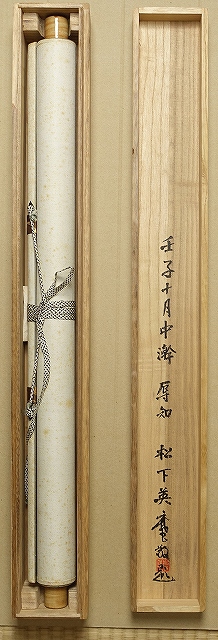 壬子十月中澣 厚知 松下英麿敬題